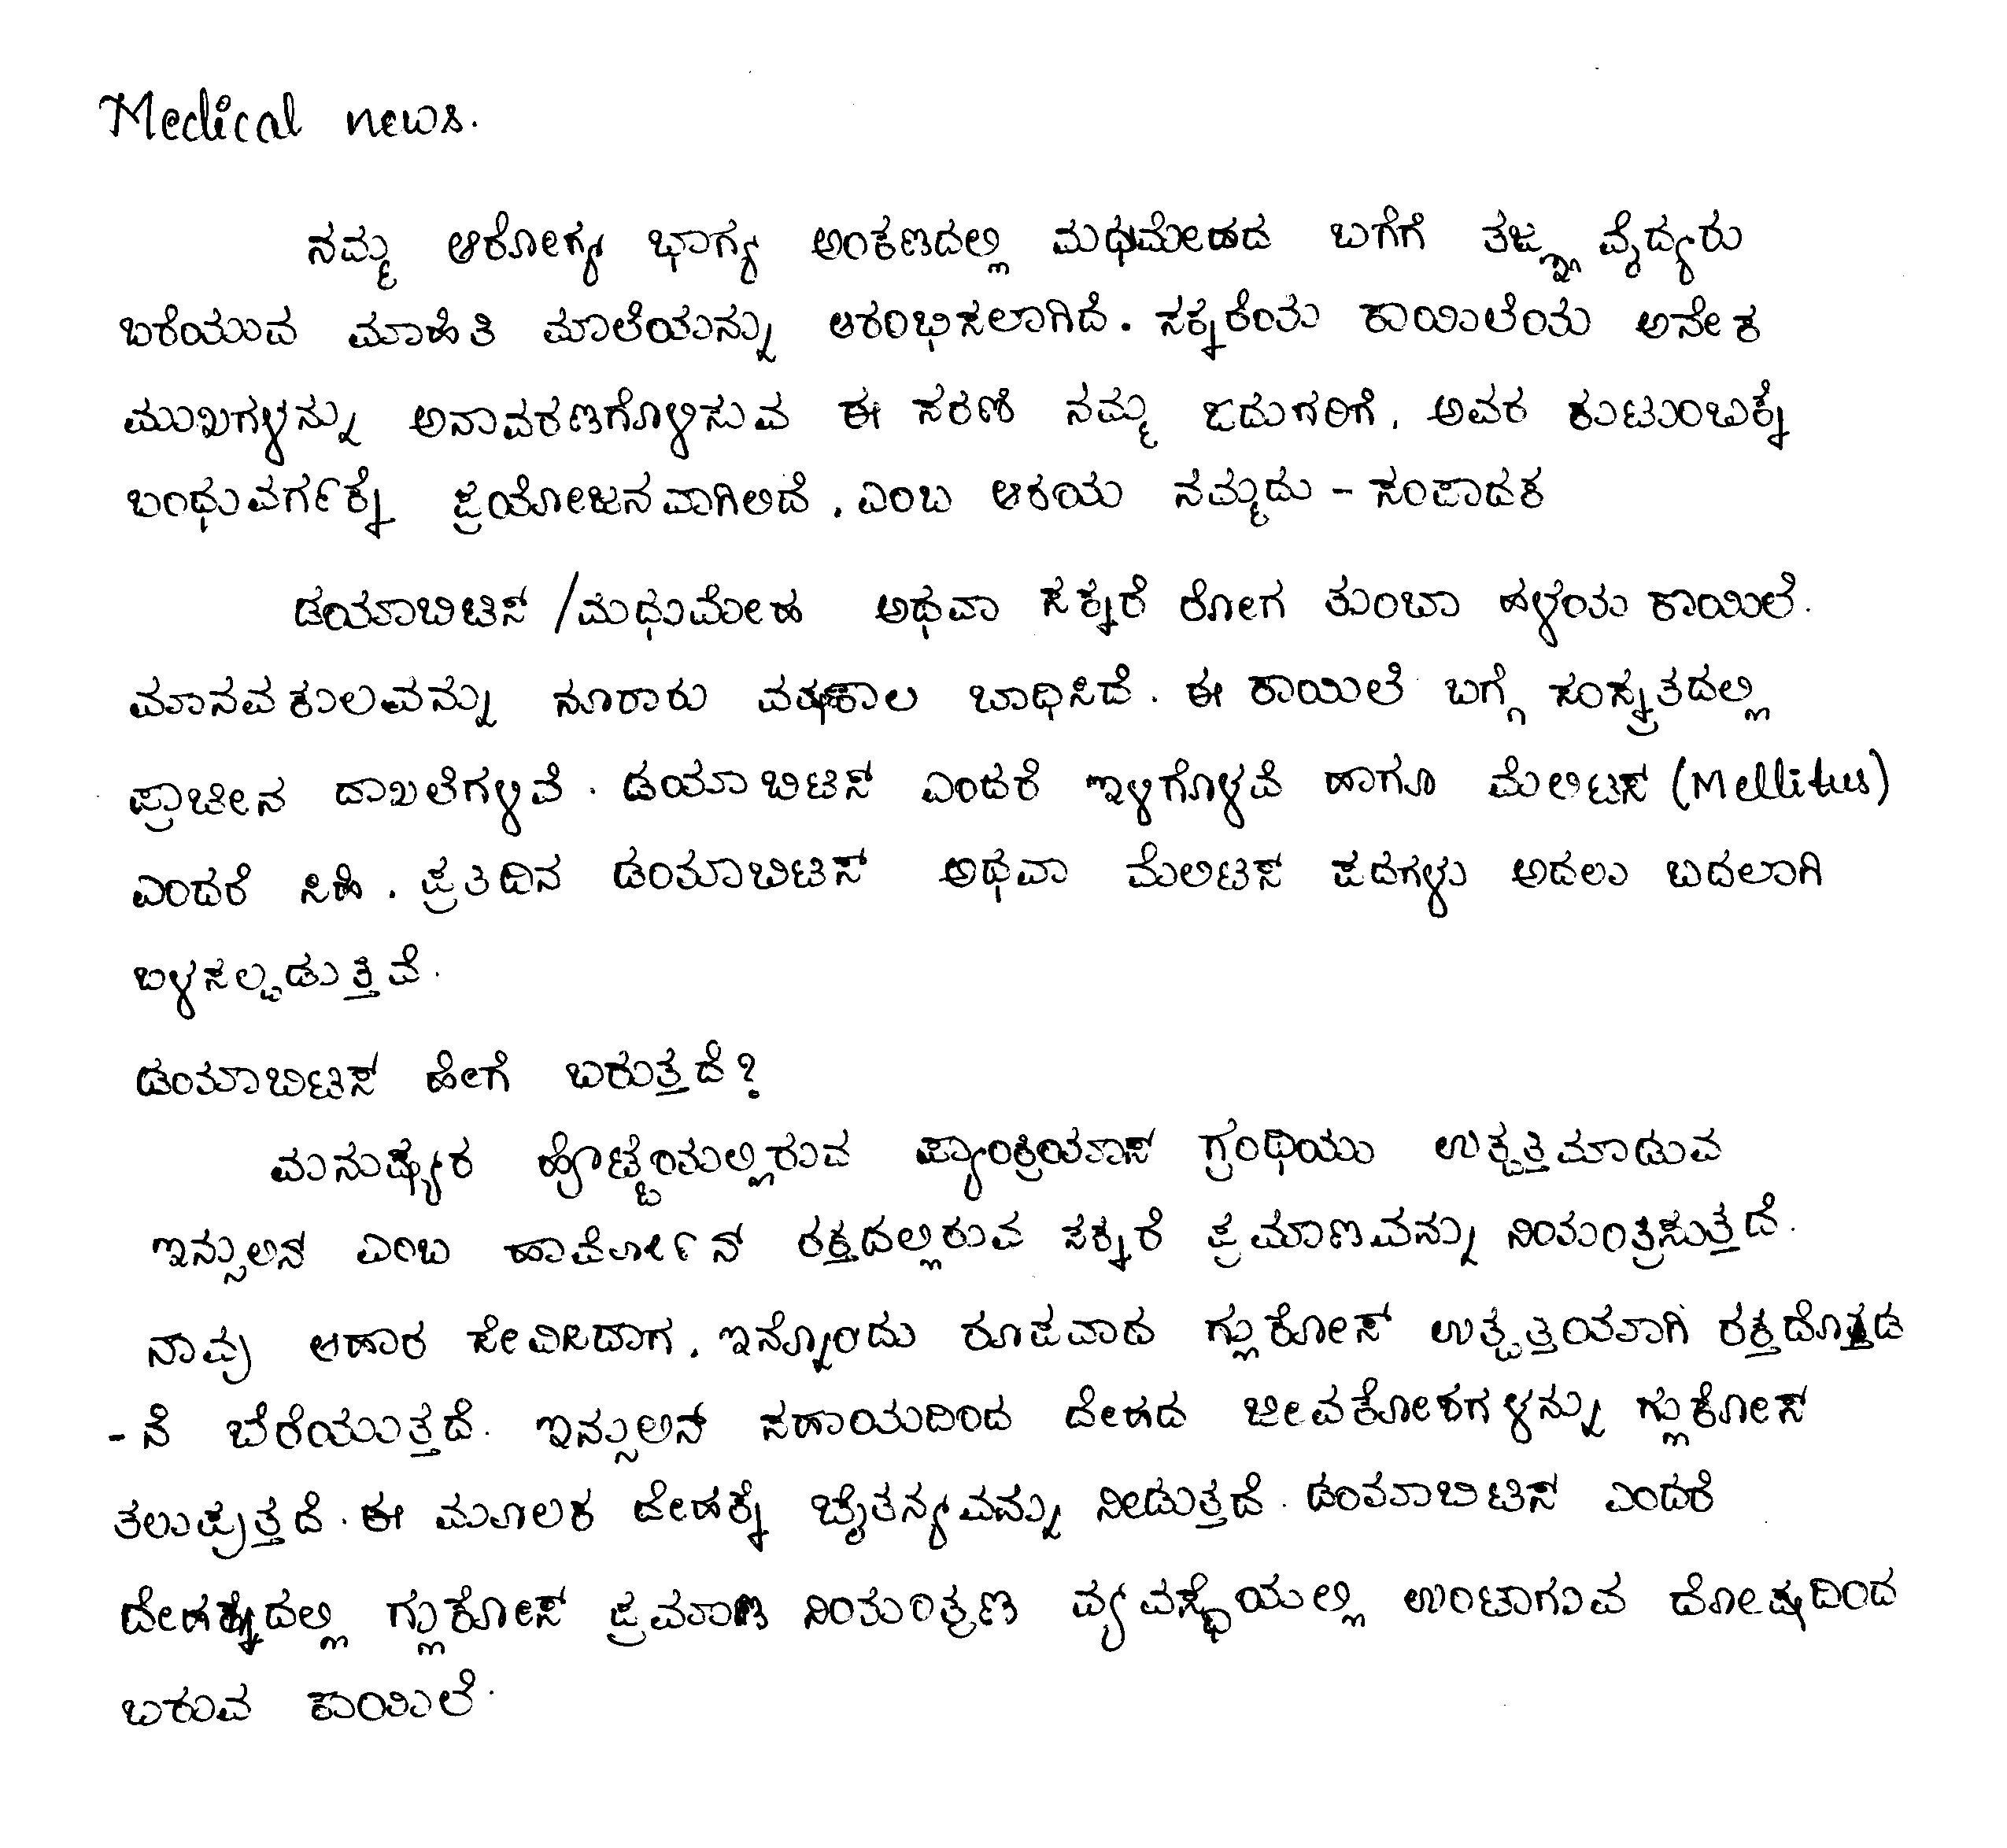 Medical news.
ನಮ್ಮ ಆರೋಗ್ಯ ಭಾಗ್ಯ ಅಂಕಣದಲ್ಲಿ ಮಧುಮೇಹದ ಬಗೆಗೆ ತಜ್ಞ ವೈದ್ಯರು
ಬರೆಯುವ ಮಾಹಿತಿ ಮಾಲೆಯನ್ನು ಆರಂಭಿಸಲಾಗಿದೆ. ಸಕ್ಕರೆಯ ಕಾಯಿಲೆಯ ಅನೇಕ
ಮುಖಗಳನ್ನು ಅನಾವರಣಗೊಳಿಸುವ ಈ ಸರಣಿ ನಮ್ಮ ಓದುಗರಿಗೆ, ಅವರ ಕುಟುಂಬಕ್ಕೆ
ಬಂಧುವರ್ಗಕ್ಕೆ ಪ್ರಯೋಜನವಾಗಿಲಿದೆ, ಎಂಬ ಆಶಯ ನಮ್ಮದು - ಸಂಪಾದಕ
ಡಯಾಬಿಟಿಸ್ /ಮಧುಮೇಹ ಅಥವಾ ಸಕ್ಕರೆ ರೋಗ ತುಂಬಾ ಹಳೆಯ ಕಾಯಿಲೆ.
ಮಾನವಕುಲವನ್ನು ನೂರಾರು ವರ್ಷಕಾಲ ಬಾಧಿಸಿದೆ. ಈ ಕಾಯಿಲೆ ಬಗ್ಗೆ ಸಂಸ್ಕೃತದಲ್ಲಿ
ಪ್ರಾಚೀನ ದಾಖಲೆಗಳಿವೆ. ಡಯಾಬಿಟಿಸ್ ಎಂದರೆ ಇಳಿಗೊಳವೆ ಹಾಗೂ ಮೆಲಿಟಸ್ (Mellitus)
ಎಂದರೆ ಸಿಹಿ. ಪ್ರತಿದಿನ ಡಯಾಬಿಟಿಸ್ ಅಥವಾ ಮೆಲಿಟಸ್ ಪದಗಳು ಅದಲು ಬದಲಾಗಿ
ಬಳಸಲ್ಪಡುತ್ತಿವೆ.
ಡಯಾಬಿಟಿಸ್ ಹೇಗೆ ಬರುತ್ತದೆ?
ಮನುಷ್ಯರ ಹೊಟ್ಟೆಯಲ್ಲಿರುವ ಪ್ಯಾಂಕ್ರಿಯಾಸ್ ಗ್ರಂಥಿಯು ಉತ್ಪತ್ತಿಮಾಡುವ
ಇನ್ಸುಲಿನ್ ಎಂಬ ಹಾರ್ಮೋನ್ ರಕ್ತದಲ್ಲಿರುವ ಸಕ್ಕರೆ ಪ್ರಮಾಣವನ್ನು ನಿಯಂತ್ರಿಸುತ್ತದೆ.
ನಾವು ಆಹಾರ ಸೇವಿಸಿದಾಗ, ಇನ್ನೊಂದು ರೂಪವಾದ ಗ್ಲುಕೋಸ್ ಉತ್ಪತ್ತಿಯಾಗಿ ರಕ್ತದೊಡ
-ನೆ ಬೆರೆಯುತ್ತದೆ. ಇನ್ಸುಲಿನ್ ಸಹಾಯದಿಂದ ದೇಹದ ಜೀವಕೋಶಗಳನ್ನು ಗ್ಲುಕೋಸ್
ತಲುಪುತ್ತದೆ. ಈ ಮೂಲಕ ದೇಹಕ್ಕೆ ಚೈತನ್ಯವನ್ನು ನೀಡುತ್ತದೆ. ಡಯಾಬಿಟಿಸ್ ಎಂದರೆ
ದೇಹದಲ್ಲಿ ಗ್ಲುಕೋಸ್ ಪ್ರಮಾಣ ನಿಯಂತ್ರಣ ವ್ಯವಸ್ಥೆಯಲ್ಲಿ ಉಂಟಾಗುವ ದೋಷದಿಂದ
ಬರುವ ಕಾಯಿಲೆ.